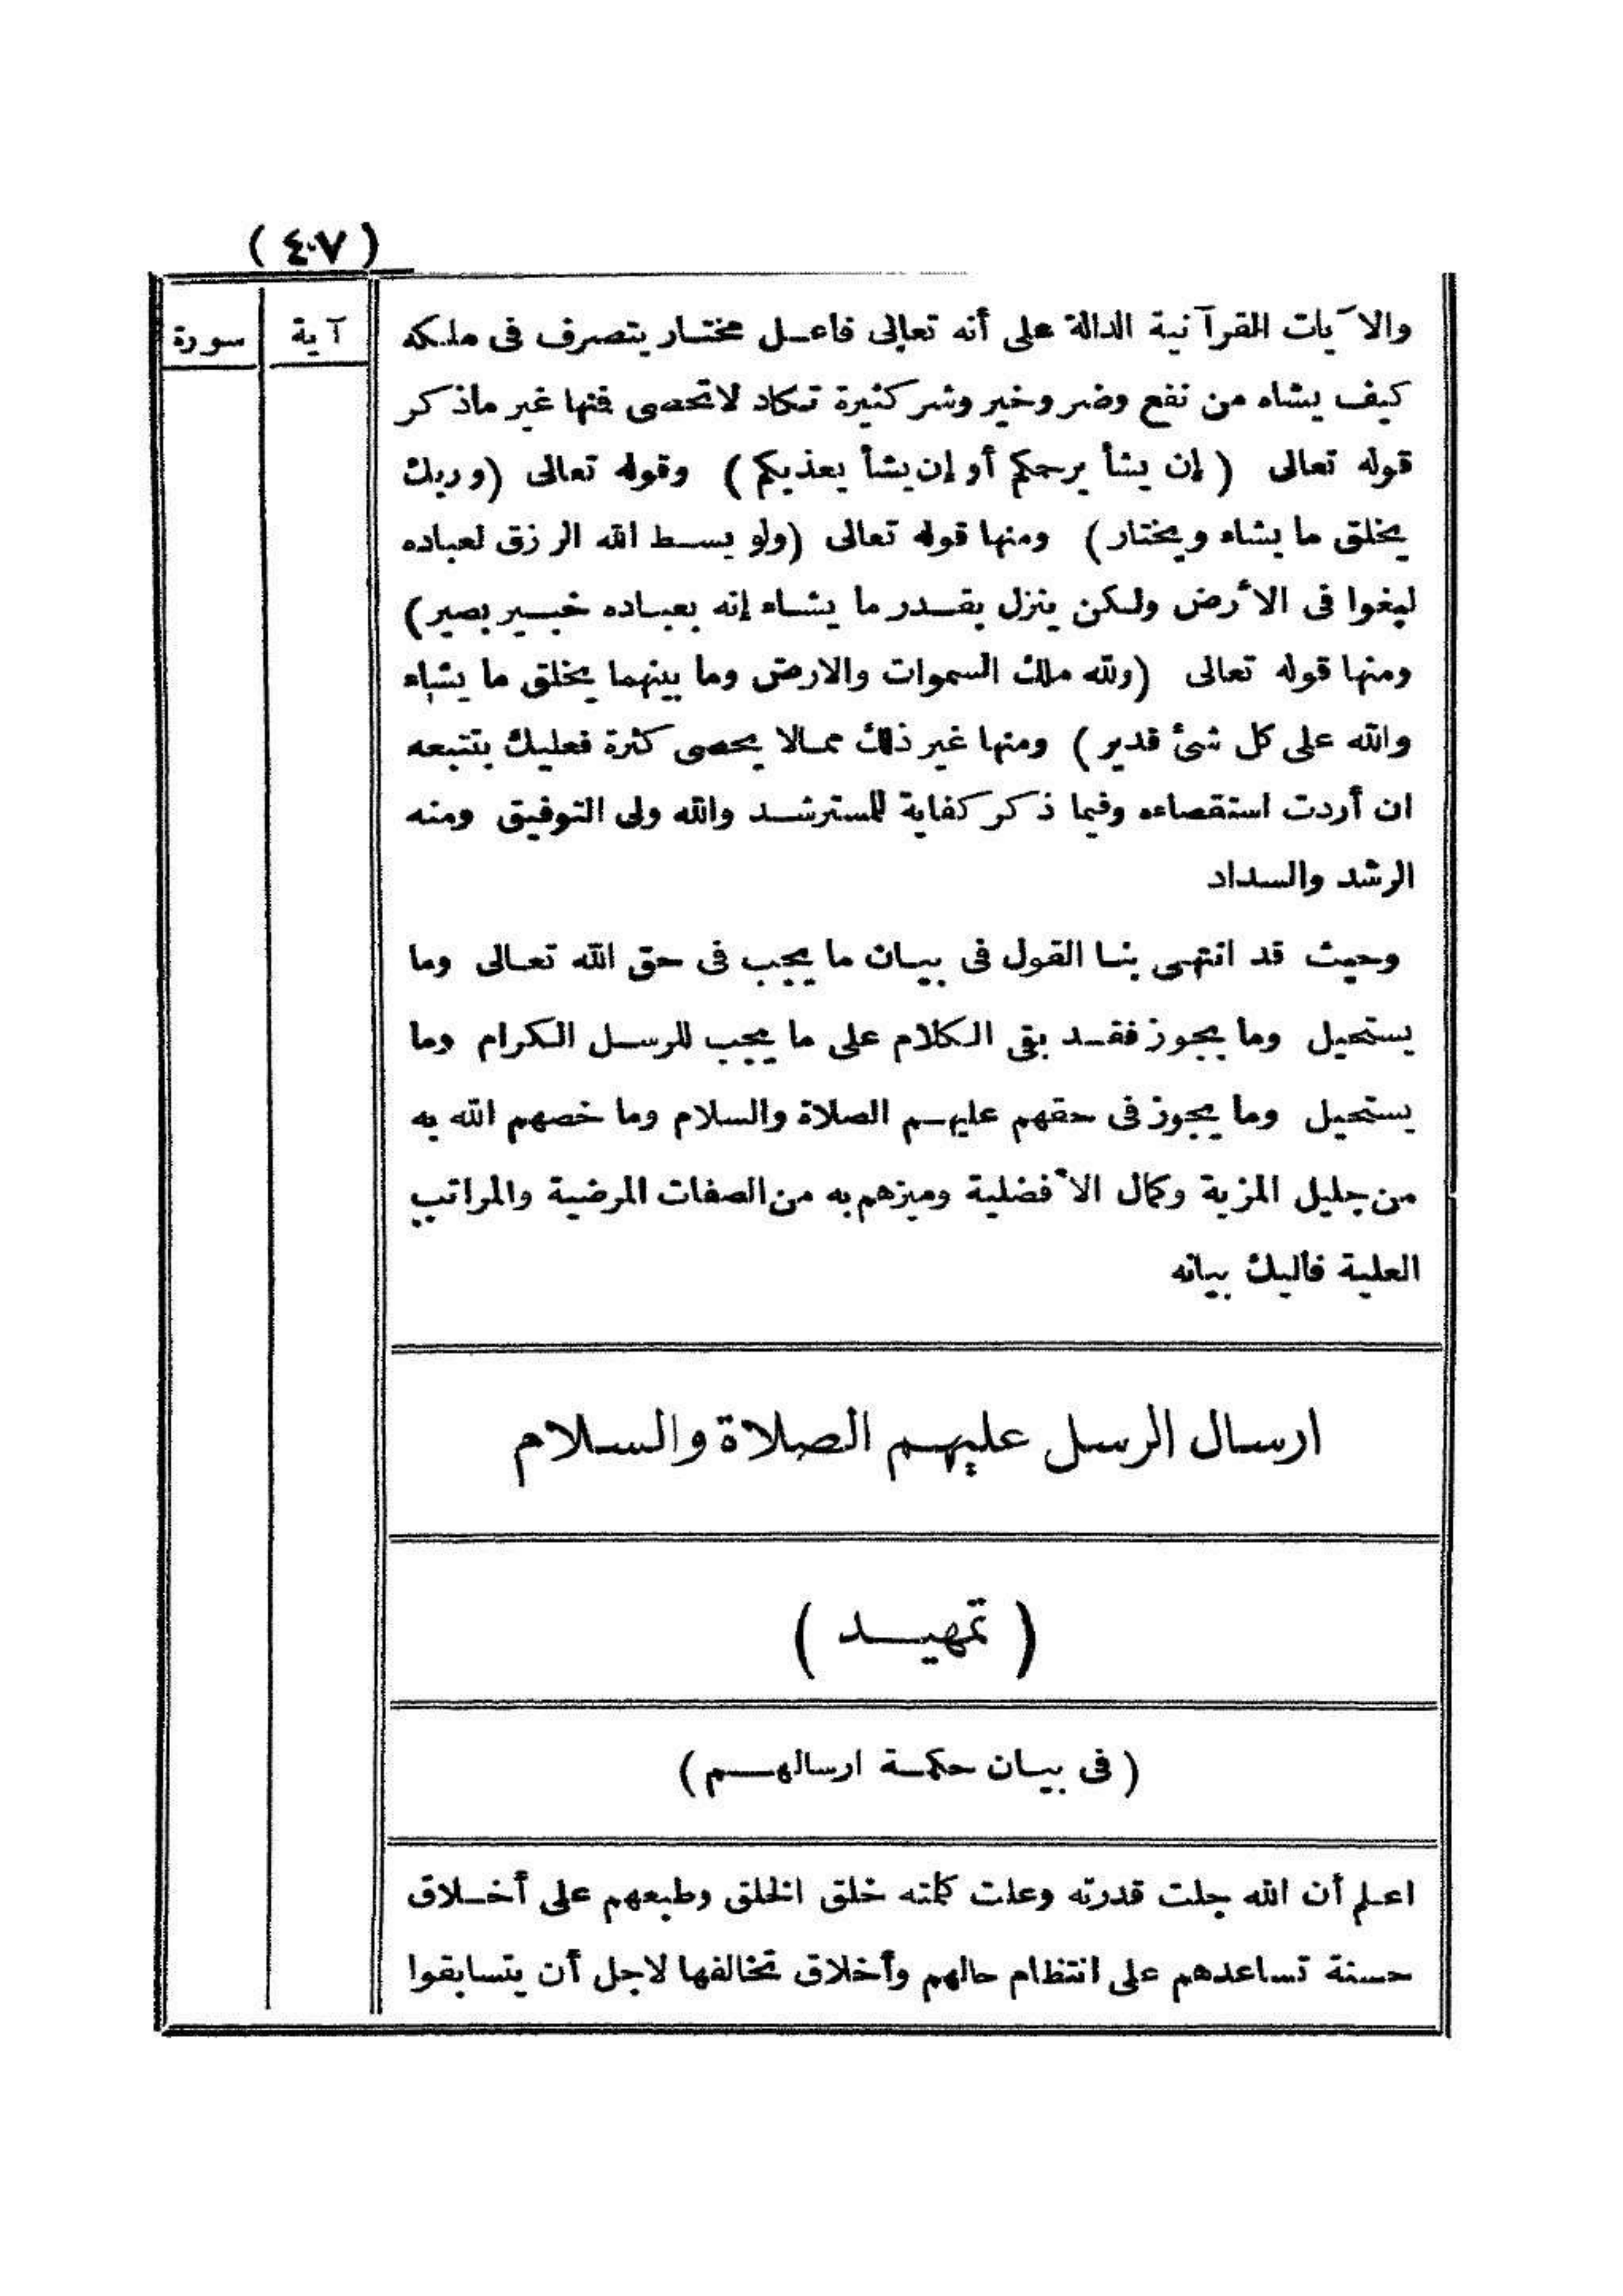 ( ٤٠٧ )
آية
سورة
والآيات القرآنية الدالة على أنه تعالى فاعل مختار يتصرف فى ملكه
كيف يشاء من نفع وضر وخير وشر كثيرة تكاد لا تحصى فمنها غير ماذكر
قوله تعالى (إن يشأ يرحمكم أو إن يشأ يعذبكم) وقوله تعالى (وربك
يخلق ما يشاء ويختار) ومنها قوله تعالى (ولو بسط الله الرزق لعباده
لبغوا فى الأرض ولكن ينزل بقدر ما يشاء إنه بعباده خبير بصير)
ومنها قوله تعالى (ولله ملك السموات والارض وما بينهما يخلق ما يشاء
والله على كل شئ قدير) ومنها غير ذلك ممالا يحصى كثرة فعليك بتتبعه
ان أردت استقصاءه وفيما ذكر كفاية للمسترشد والله ولى التوفيق ومنه
الرشد والسداد
وحيث قد انتهى بنا القول فى بيان ما يجب فى حق الله تعالى وما
يستحيل وما يجوز فقد بقى الكلام على ما يجب للرسل الكرام وما
يستحيل وما يجوز فى حقهم عليهم الصلاة والسلام وما خصهم الله به
من جليل المزية وكمال الأفضلية وميزهم به من الصفات المرضية والمراتب
العلية فاليك بيانه
ارسال الرسل عليهم الصلاة والسلام
( تمهيد )
( فى بيان حكمة ارسالهم )
اعلم أن الله جلت قدرته وعلت كلمته خلق الخلق وطبعهم على أخلاق
حسنة تساعدهم على انتظام حالهم وأخلاق تخالفها لاجل أن يتسابقوا